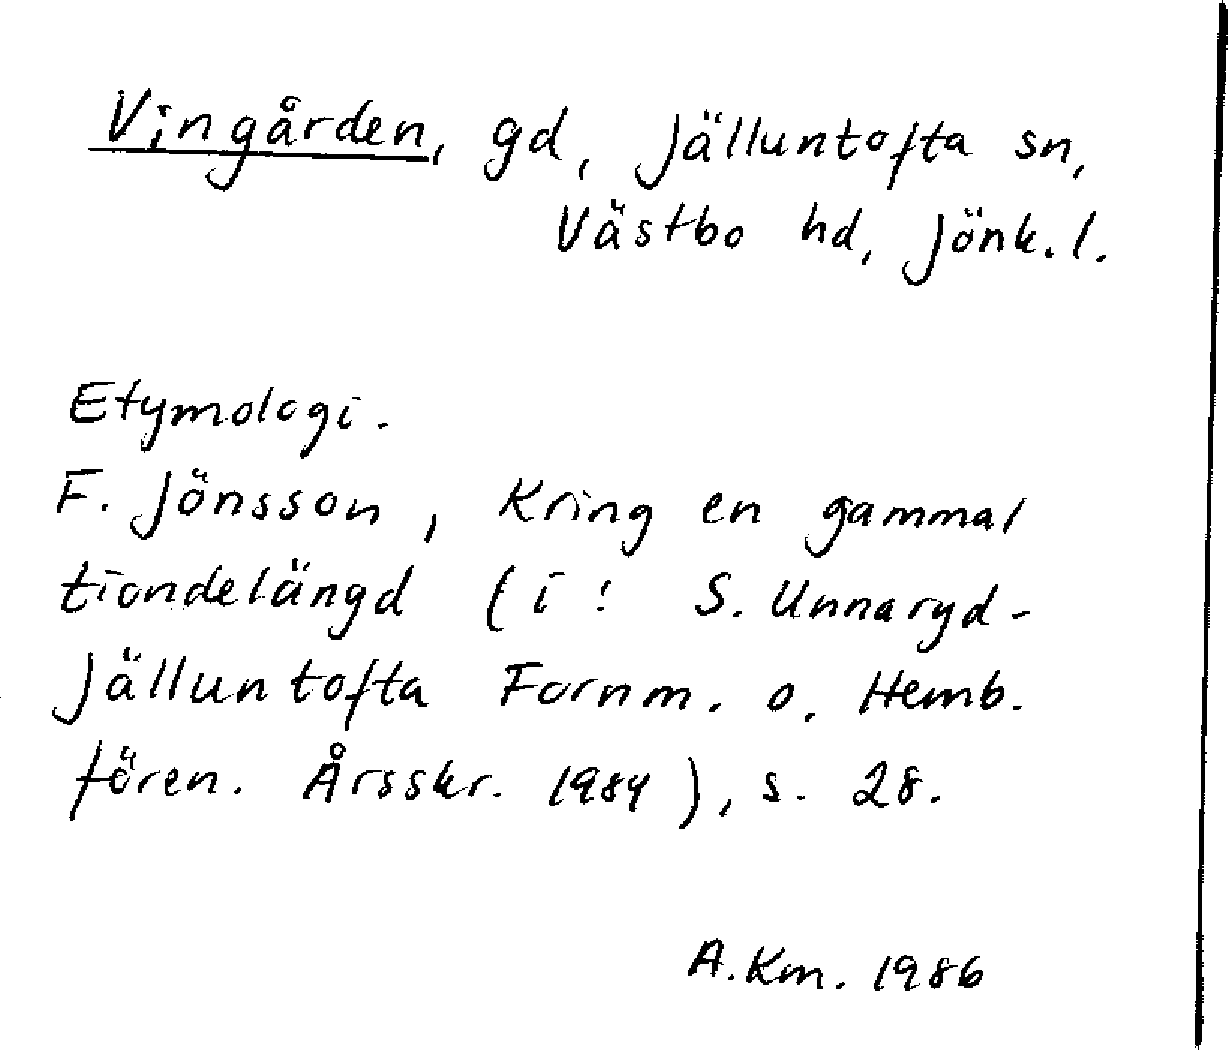 Vingården, gd, Jälluntofta sn,
Västbo hd, Jönk.l.
Etymologi.
F. Jönsson, Kring en gammal
tiondelängd (i: S. Unnaryd-
Jälluntofta Fornm. o. Hemb.
fören. Årsskr. 1984), s. 28.
A.Km. 1986